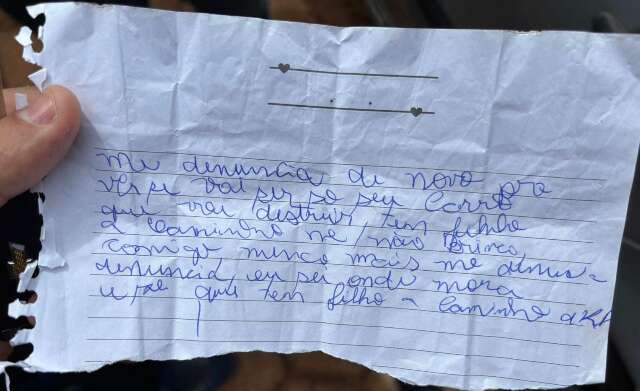 me denuncia de novo pra
ver se vai ser só seu carro
que vai distruir, tem filho
a caminho né, não brinca
comigo nunca mais me denun-
denuncia, eu sei onde mora
que tem filho a caminho